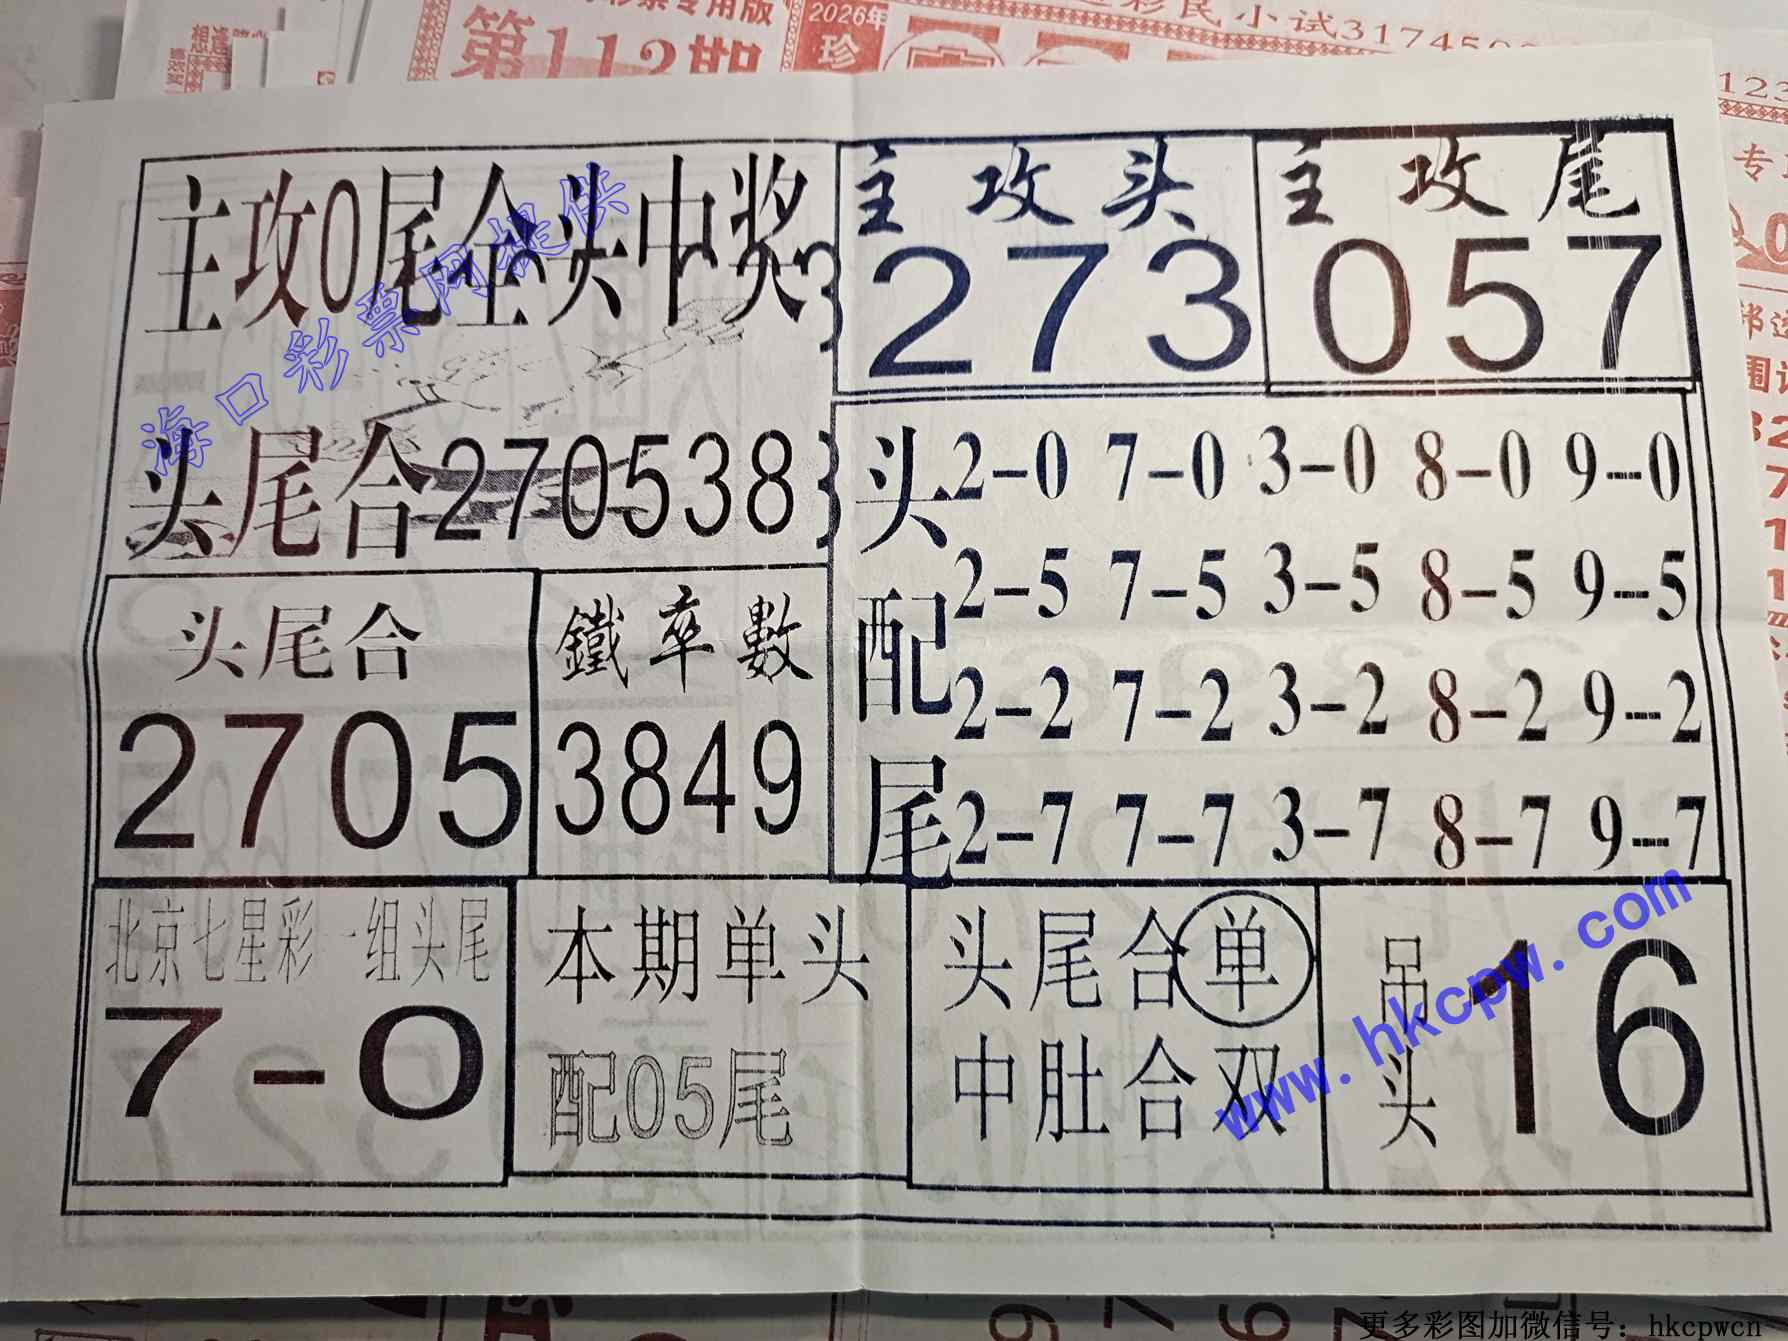 想逢
彩票专用版
第113期
2026年
珍
彩民小试3174500
123
专
主攻0尾全头中奖
主攻头
273
主攻尾
057
头尾合270538
头配尾
2-0 7-0 3-0 8-0 9--0
2-5 7-5 3-5 8-5 9--5
2-2 7-2 3-2 8-2 9--2
2-7 7-7 3-7 8-7 9--7
头尾合
2705
鐵卒數
3849
北京七星彩一组头尾
7-0
本期单头
配05尾
头尾合单
中肚合双
吊头
16
海口彩票网提供
www.hkcpw.com
更多彩图加微信号：hkcpwcn